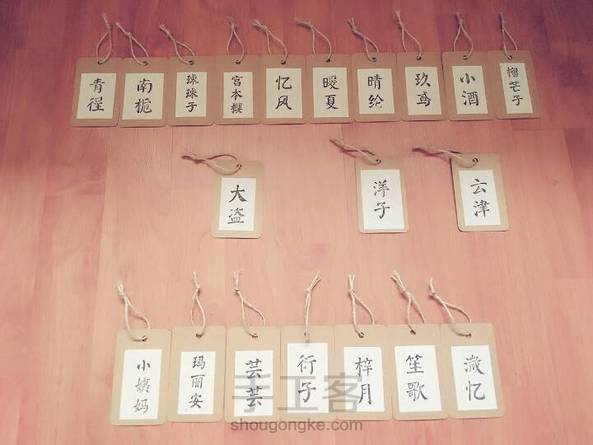 青徎
南栀
球球子
宫本樱
忆风
暖夏
晴绘
玖鸢
小酒
榴芒子
大盗
洋子
云津
小姨妈
玛丽安
芸芸
衍子
梓月
笙歌
澉忆
手工客
shougongke.com